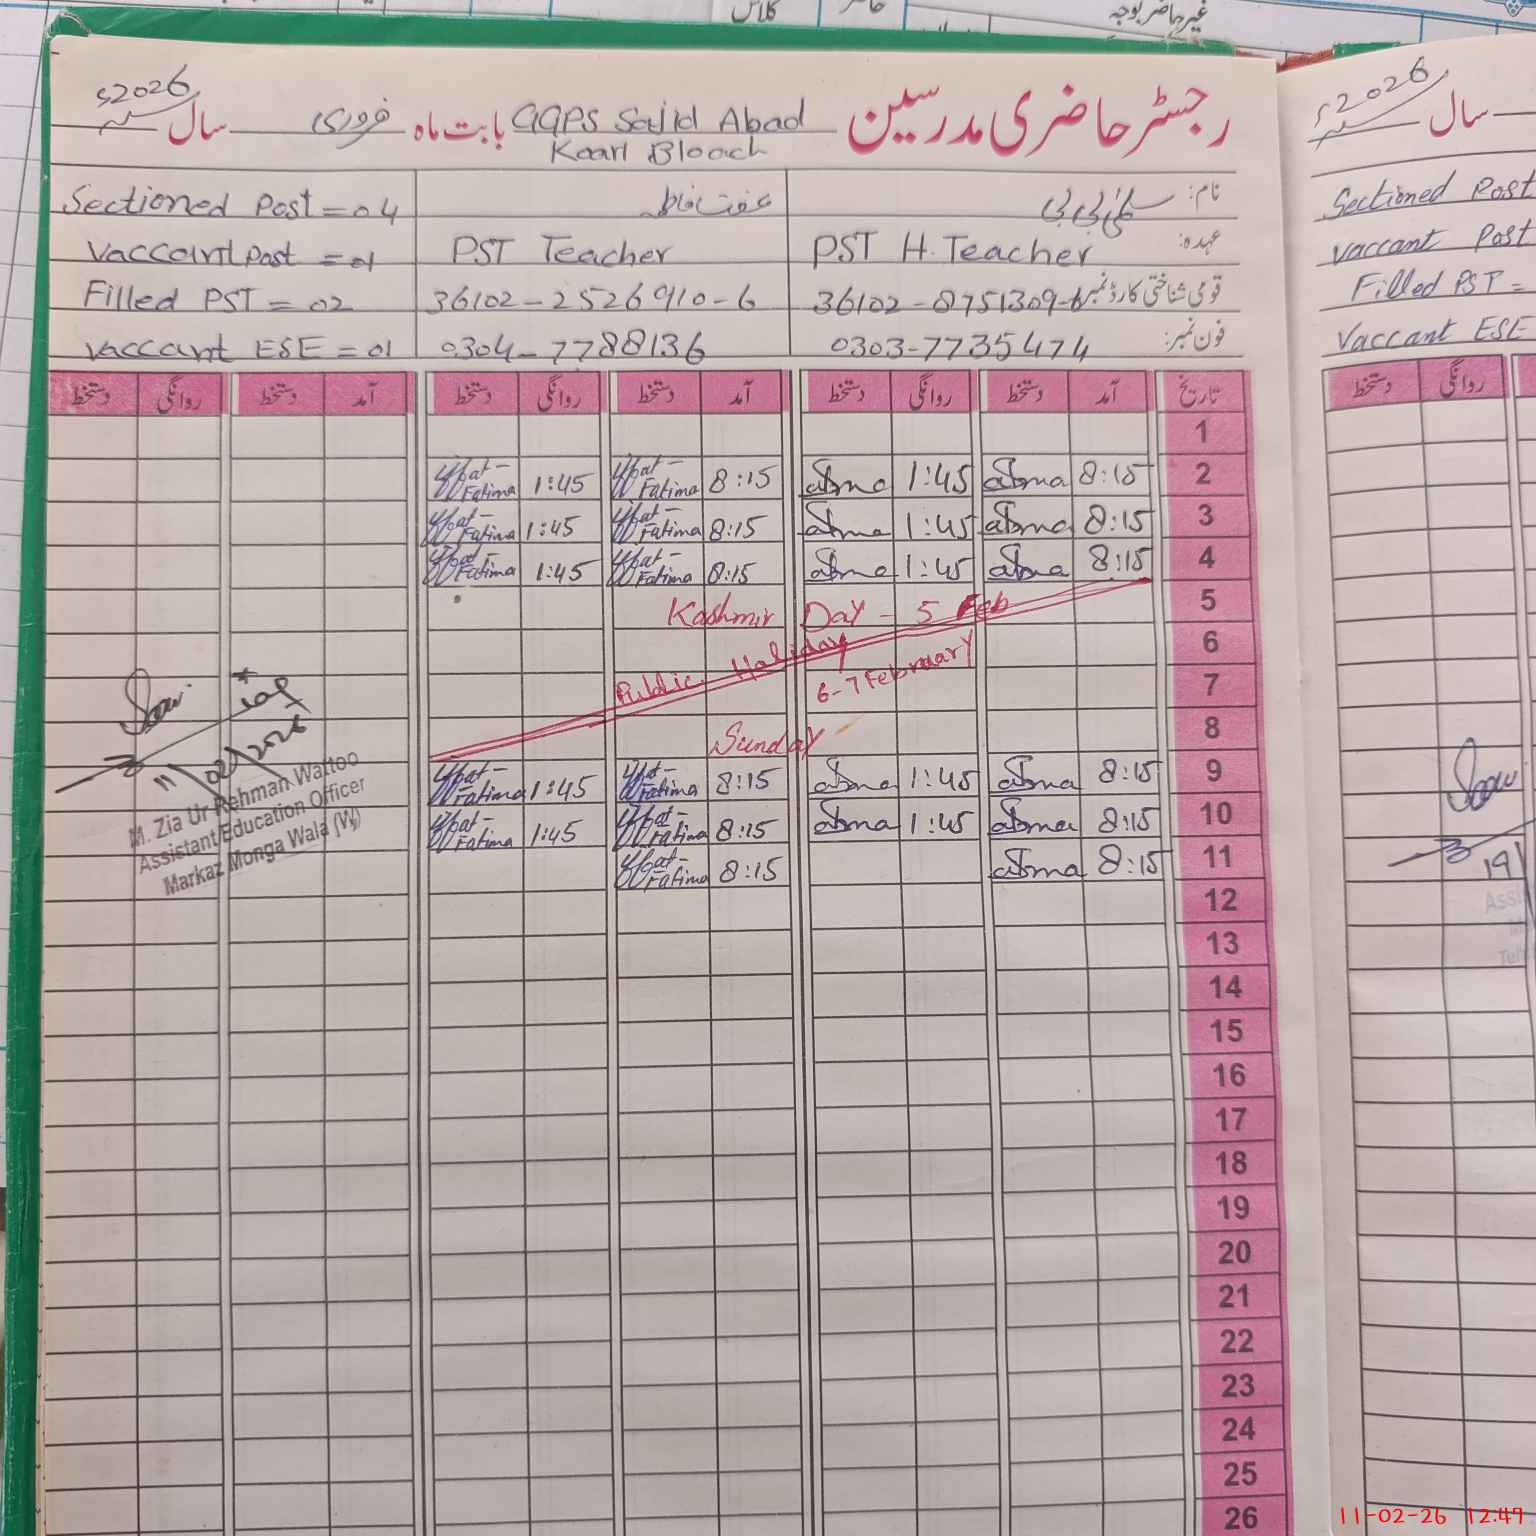 غیر حاضر بوجہ
کلاس
رجسٹر حاضری مدرسین GGPS Sajid Abad بابت ماہ فروری سال 2026ء
Kaarl Bloach
نام: سلمیٰ بی بی عفت فاطمہ Sectioned Post = 04
عہدہ: PST H. Teacher PST Teacher Vaccant Post = 01
قومی شناختی کارڈ نمبر 36102-8751309-6 36102-2526910-6 Filled PST = 02
فون نمبر: 0303-7735474 0304-7788136 Vaccant ESE = 01
تاریخ آمد دستخط روانگی دستخط آمد دستخط روانگی دستخط آمد دستخط روانگی دستخط
1
2 8:15 1:45 8:15 Iffat Fatima 1:45 Iffat Fatima
3 8:15 1:45 8:15 Iffat Fatima 1:45 Iffat Fatima
4 8:15 1:45 8:15 Iffat Fatima 1:45 Iffat Fatima
5 Kashmir Day - 5 Feb
6 Public Holiday
7 6-7 February
8 Sunday
9 8:15 1:45 8:15 Iffat Fatima 1:45 Iffat Fatima
10 8:15 1:45 8:15 Iffat Fatima 1:45 Iffat Fatima
11 8:15 8:15 Iffat Fatima
12
13
14
15
16
17
18
19
20
21
22
23
24
25
26
11/02/2026
M. Zia Ur Rehman Wattoo
Assistant Education Officer
Markaz Monga Wala (W)
سال 2026ء
Sectioned Post
Vaccant Post
Filled PST =
Vaccant ESE
روانگی دستخط
19
11-02-26 12:47